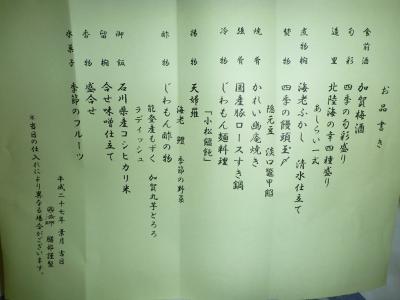 お品書き
食前酒 加賀梅酒
旬彩 四季の旬彩盛り
造里 北陸海の幸四種盛り
あしらい一式
煮物椀 海老ふかし 清水仕立て
焚物 四季の饅頭玉〆
隠元豆 淡口鼈甲餡
焼肴 かれい幽庵焼き
強肴 国産豚ロースすき鍋
冷物 じわもん麺料理
「小松饂飩」
揚物 天婦羅
海老 鱚 季節の野菜
酢物 じわもん酢の物
能登産もずく 加賀丸芋とろろ
ラディッシュ
御飯 石川県産コシヒカリ米
留椀 合せ味噌仕立て
香物 盛合せ
水菓子 季節のフルーツ
※当日の仕入れにより異なる場合がございます。
平成二十七年 葉月 吉日
謹製